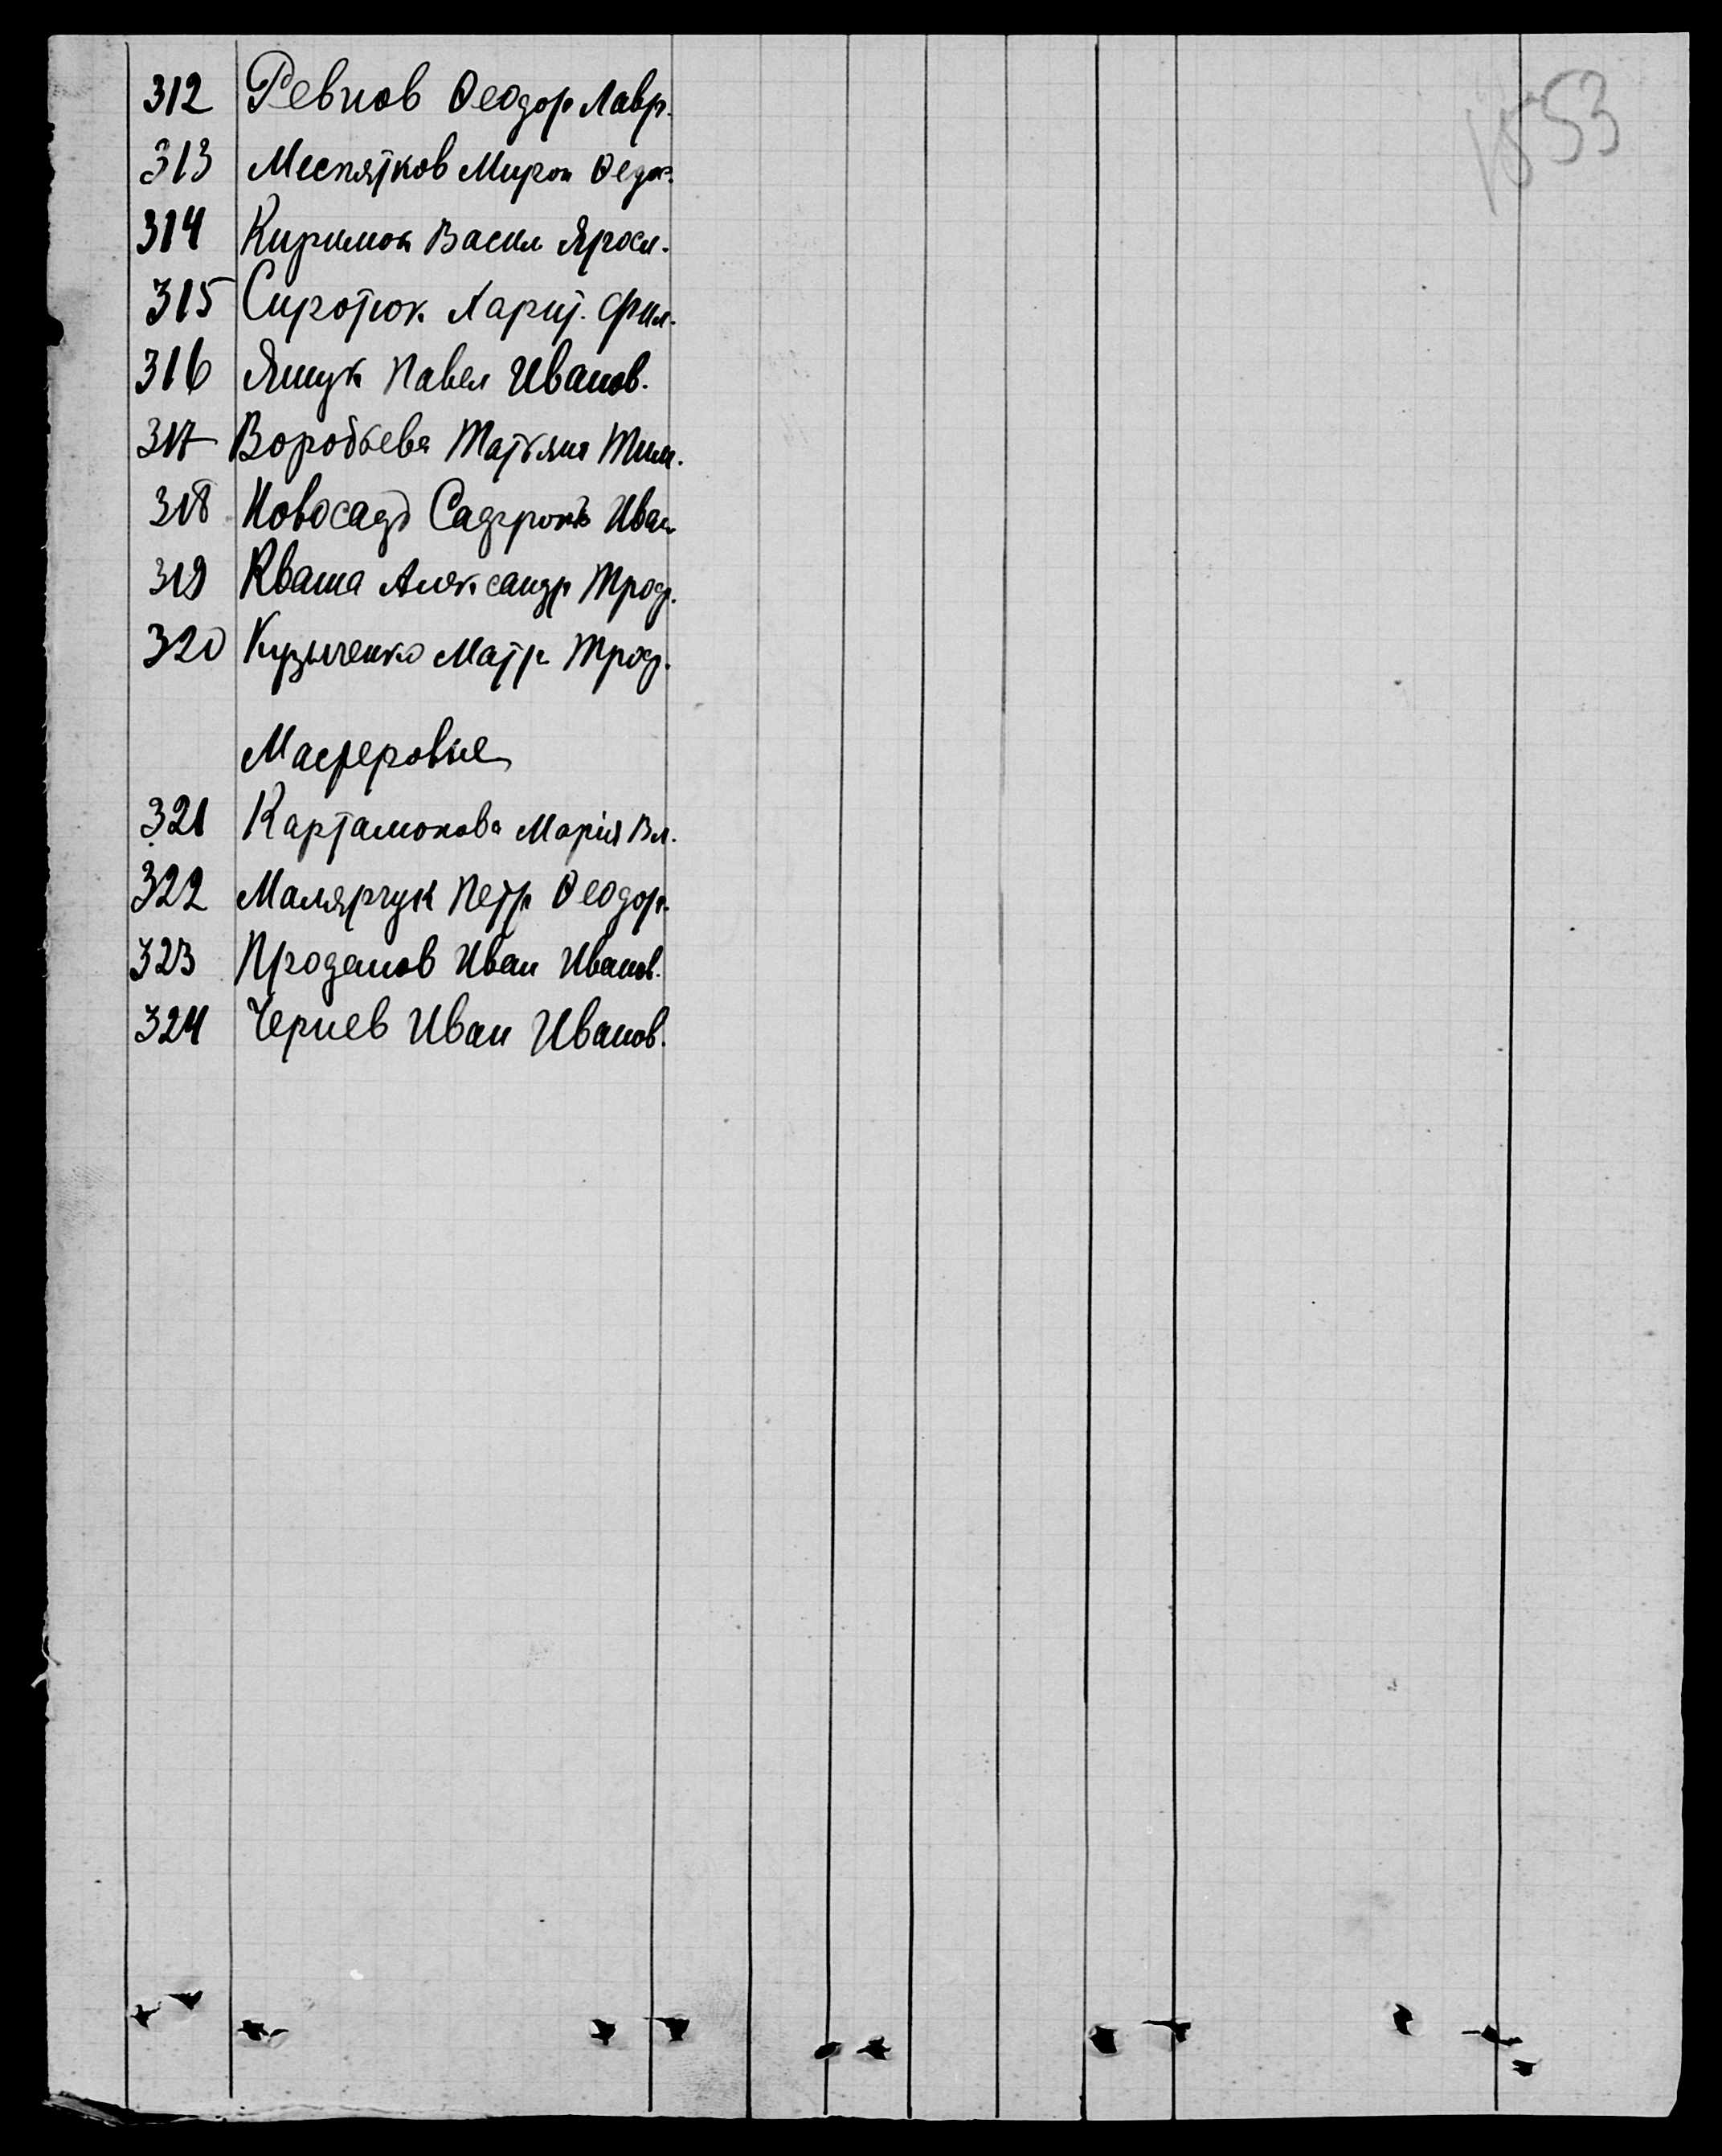 1553
312 Ревнов Ѳеодор Лавр.
313 Меспятков Мирон Ѳедор.
314 Киримон Васил Яросл.
315 Сиротюк Харит. Фил.
316 Ящук Павел Иванов.
317 Воробьева Татьяна Тим.
318 Новосадъ Иван
319 Кваша Александр Троф.
320 Кузьменко Матр Троф.
Мастеровые
321 Картамонова Марія Вл.
322 Малярчук Петр Ѳеодор.
323 Проданов Иван Иванов.
324 Чернев Иван Иванов.